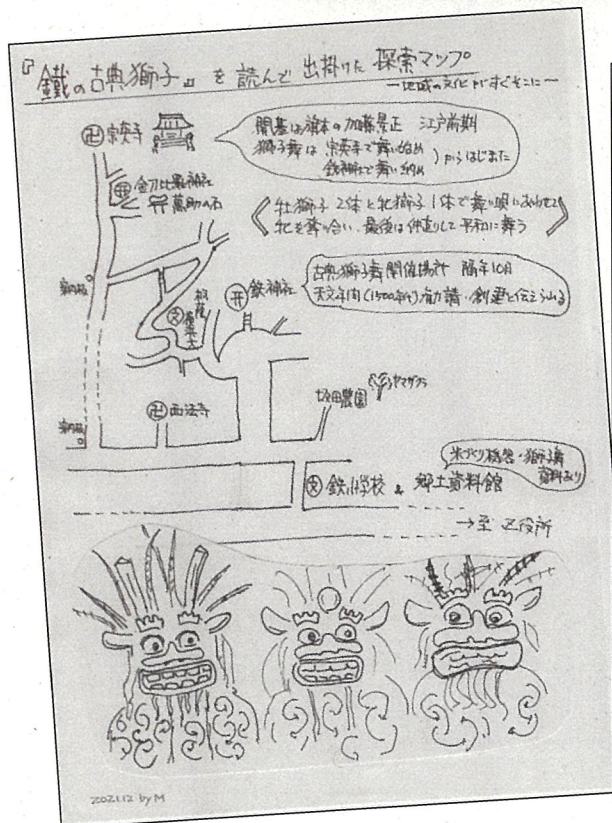 『鐵の古典獅子』を読んで出掛けた探索マップ
～地域の文化がすぐそこに～
卍宗英寺
開基は旗本の加藤景正 江戸前期
獅子舞は 宗英寺で舞い始め
鉄神社で舞い納め
からはじまった
金刀比羅神社
萬助の石
《牡獅子 2体と牝獅子 1体で舞い唄にあわせて
牝を奪い合い、最後は仲直りして平和に舞う》
古典獅子舞開催場所 隔年10月
天文年間(1500年代)勧請・創建と伝えられる
開鉄神社
文
桐蔭
横浜大
卍西法寺
農園
ヤマザクラ
米づくり機器・獅子舞
資料あり
文鉄小学校 & 郷土資料館
→至 区役所
2021.12 by M